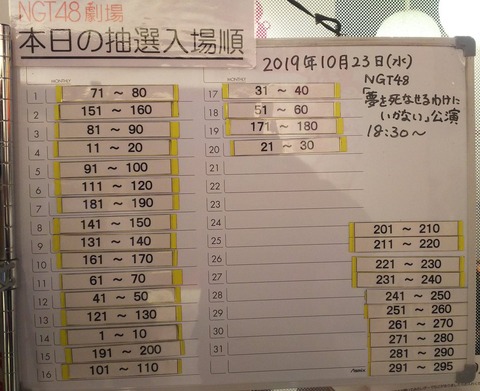 NGT48劇場
本日の抽選入場順
2019年10月23日(水)
NGT48
「夢を死なせるわけに
いかない」公演
18:30～
MONTHLY
1 71 ～ 80
2 151 ～ 160
3 81 ～ 90
4 11 ～ 20
5 91 ～ 100
6 111 ～ 120
7 181 ～ 190
8 141 ～ 150
9 131 ～ 140
10 161 ～ 170
11 61 ～ 70
12 41 ～ 50
13 121 ～ 130
14 1 ～ 10
15 191 ～ 200
16 101 ～ 110
MONTHLY
17 31 ～ 40
18 51 ～ 60
19 171 ～ 180
20 21 ～ 30
21
22
23
24
25
26
27
28
29
30
31
201 ～ 210
211 ～ 220
221 ～ 230
231 ～ 240
241 ～ 250
251 ～ 260
261 ～ 270
271 ～ 280
281 ～ 290
291 ～ 295